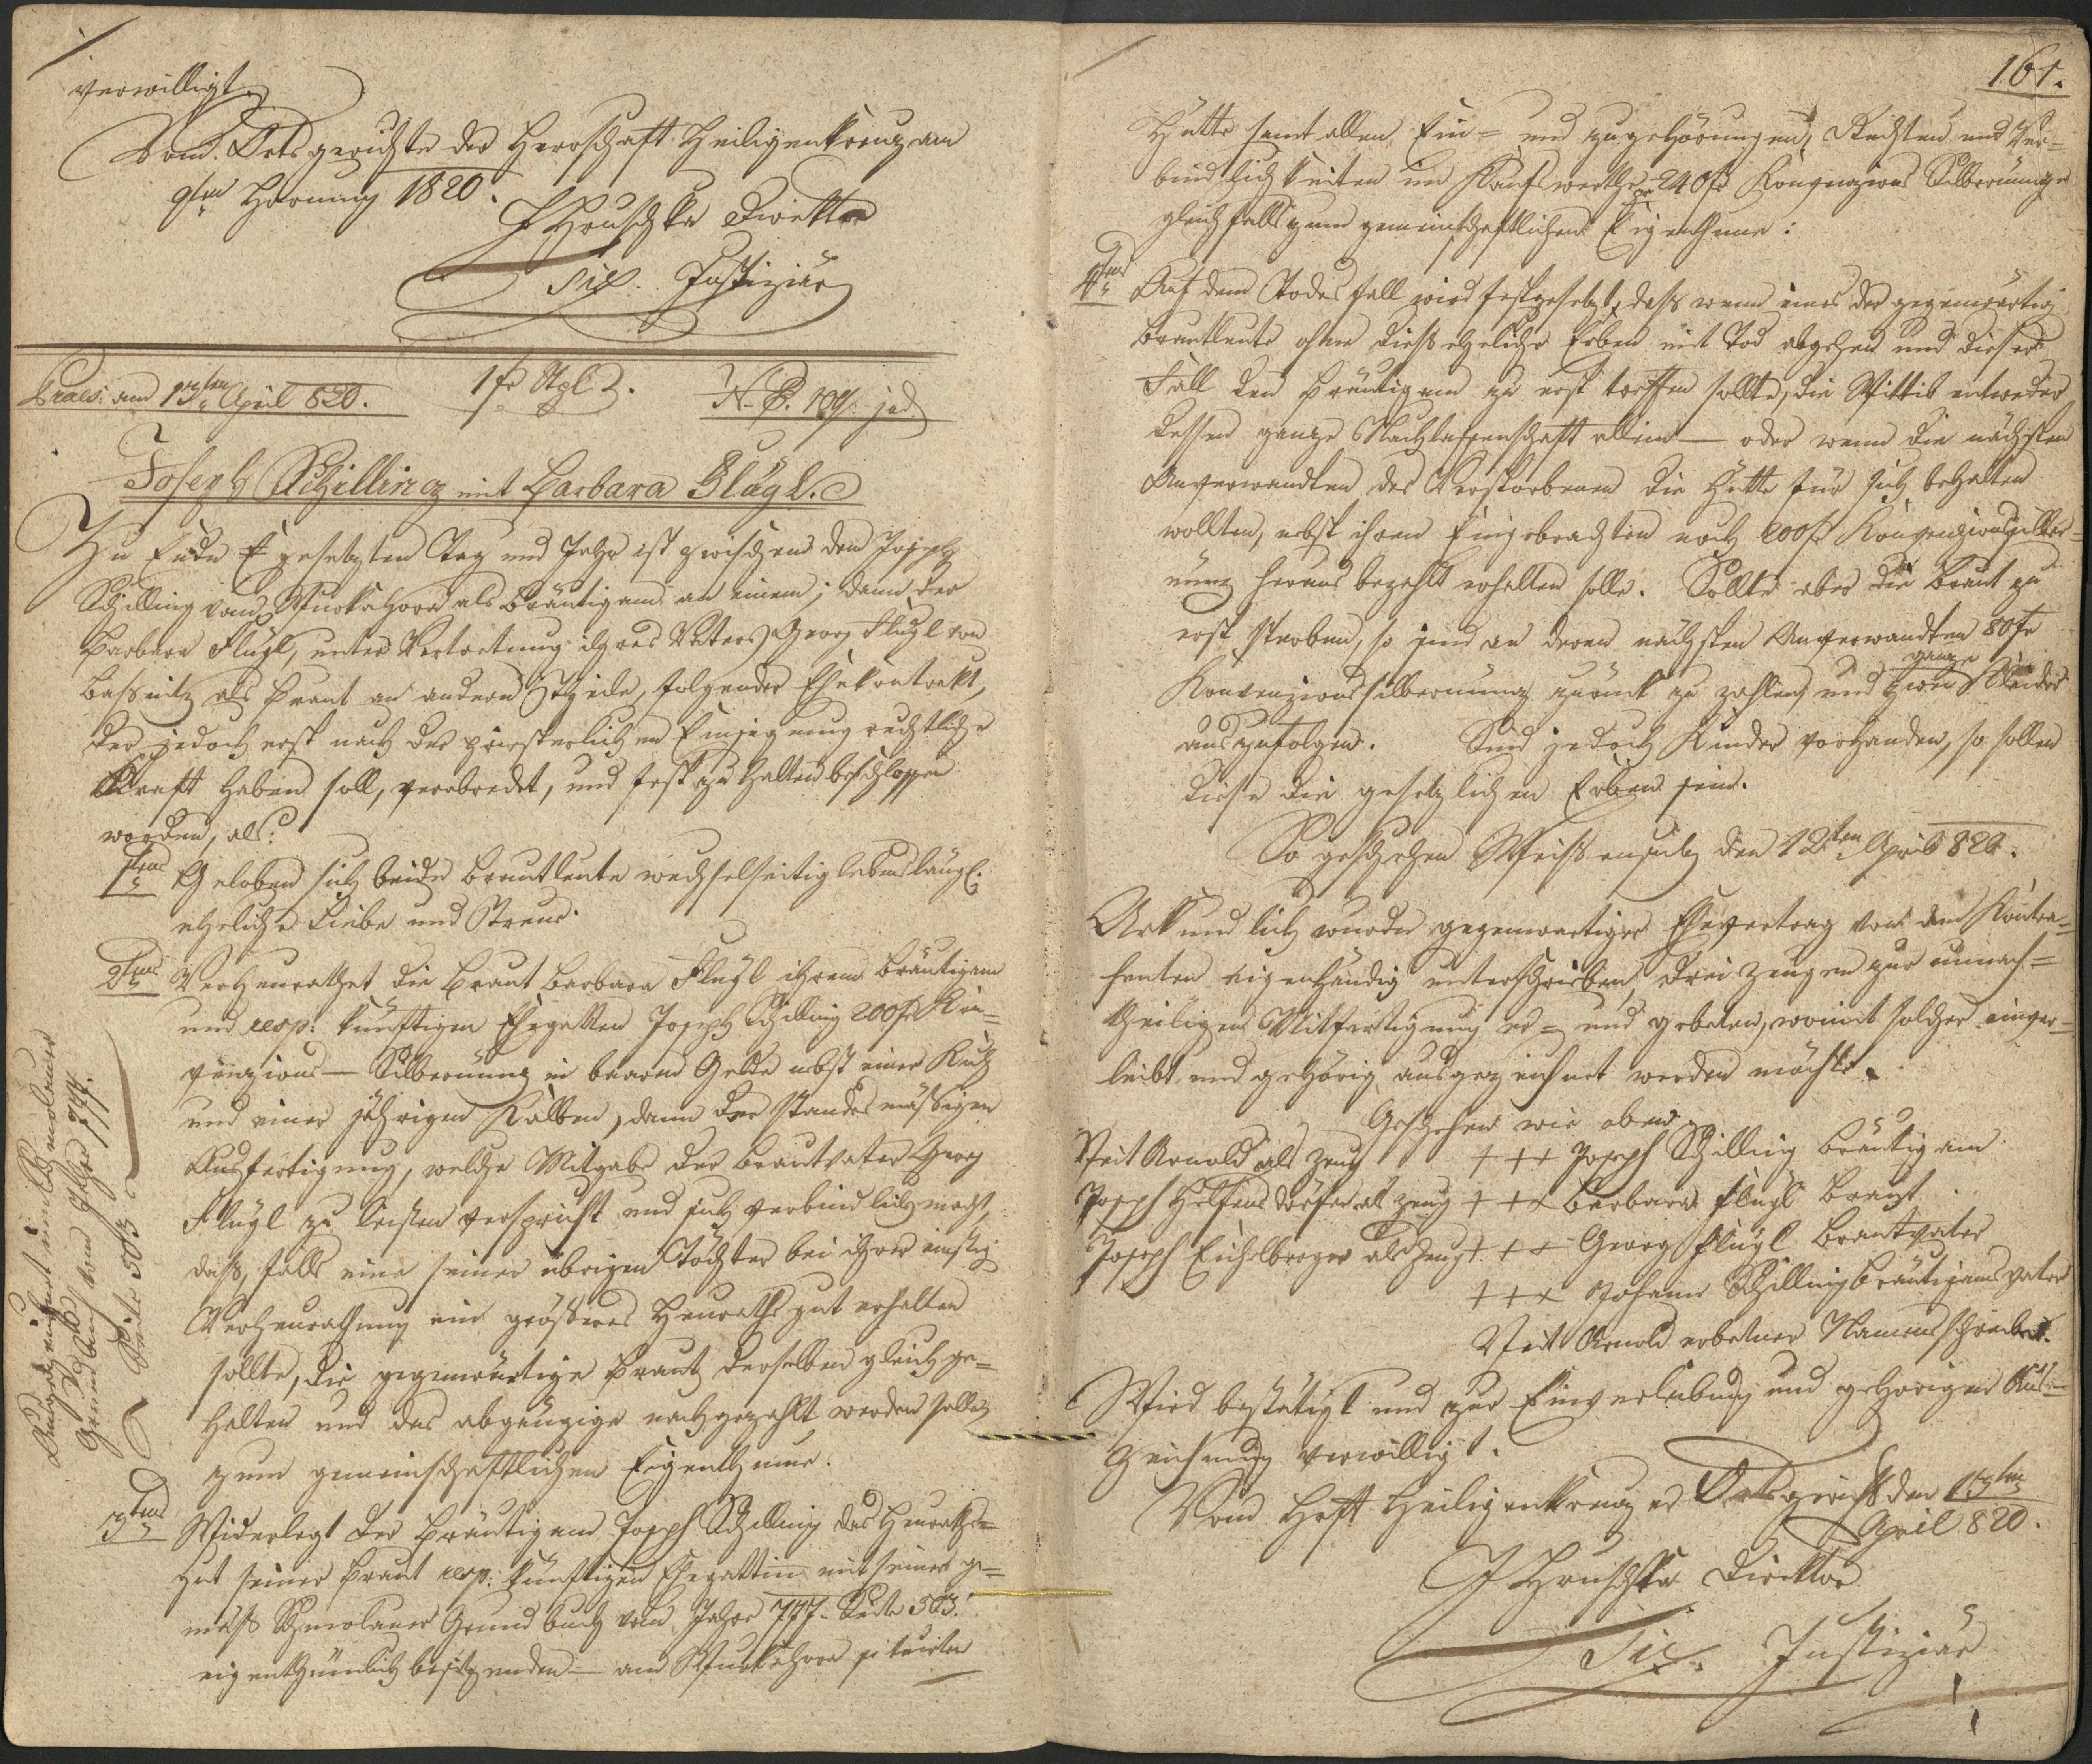 verwilligt.
Vom Ortsgerichte der Herrschaft Heiligenkreuz am
9ten Hornung 1820.
J Hruschka Direktor
Six. Justiziär
Praes: am 13ten April 820.
1 fr Stpl.
N. E. 104. jud.
Joseph Schilling mit Barbara Flügl.
Zu Ende gesetzten Tag und Jahr ist zwischen dem Joseph
Schilling vom als Bräutigam an einem; dann der
Barbara Flügl, unter Vertretung ihres Vaters Georg Flügl von
als Braut an andern Theile, folgender Ehekontrakt,
der jedoch erst nach der priesterlichen Einsegnung rechtliche
Kraft haben soll, verabredet, und fest zu halten beschlossen
worden, als:
1tens Geloben sich beide Brautleute wechselseitig lebenslängl:
eheliche Liebe und Treue.
2tens Verheurathet die Braut Barbara Flügl ihrem Bräutigam
und resp: künftigen Ehegatten Joseph Schilling 200 fr Kon=
venzions – Silbermünz in baarem Gelde nebst einer Kuh
und einer jährigen Kalben, dann der standesmäßigen
Ausfertigung, welche Mitgabe der Brautvater Georg
Flügl zu leisten verspricht und sich verbindlich macht,
daß, falls eine seiner übrigen Töchter bei ihrer einstig
Verheurathung ein größeres Heurathsgut erhalten
sollte, die gegenwärtige Braut derselben gleich ge=
halten und das abgängige nachgezahlt werden solle,
zum gemeinschaftlichen Eigenthume.
3tens Widerlegt der Bräutigam Joseph Schilling das Heuraths=
gut seiner Braut resp: künftigen Ehegattin mit seiner ge=
mäß Schmolauer Grundbuch vom Jahre 777. Seite 303.
eigenthümlich besitzenden – am situirten
Ausgezeichnet im Schmolauer
Grundbuch vom Jahre 777.
Seite 303
161.
Hütte samt allen Ein= und zugehörungen, Rechten und Ver=
bindlichkeiten im Kaufswerthe pr 240 fr Konvenzions Silbermünze
gleichfalls zum gemeinschaftlichen Eigenthume:
4tens Auf dem Todesfall wird festgesetzt, daß wenn eines der gegenwärtig
Brautleute ohne diesehelichen Erben mit Tod abgehen und dieser
Fall den Bräutigam zu erst treffen sollte, die Wittib entweder
dessen ganze Nachlassenschaft allein – oder wenn die nächsten
Anverwandten des Verstorbenen die Hütte für sich behalten
wollten, nebst ihrem Eingebrachten noch 200 fr Konvenzionssilber=
münz heraus bezahlt erhalten solle. Sollte aber die Braut zu
erst sterben, so sind an deren nächsten Anverwandten 80 fr
Konvenzionssilbermünz zurück zu zahlen, und zwei ganze Kleider
auszufolgen. Sind jedoch Kinder vorhanden, so sollen
diese die gesetzlichen Erben sein.
So geschehen Weißensulz den 12ten April 820.
Urkundlich wurde gegenwärtiger Ehevertrag von den Kontra=
henten eigenhändig unterschrieben, drei Zeugen zur unnach=
theiligen Mitfertigung er= und gebeten, womit solcher einver=
leibt und gehörig ausgezeichnet werden möchte.
Geschehen wie oben.
Veit Arnold als Zeug +++ Joseph Schilling Bräutigam
Joseph Helfensdörfer als Zeug +++ Barbara Flügl Braut
Joseph Eichelberger als Zeug +++ Georg Flügl Brautvater
+++ Johann Schilling Bräutigamsvater
Veit Arnold erbetener Namensschreiber.
Wird bestätigt und zur Einverleibung und gehörigen Aus=
zeichnung verwilligt.
Vom Hschft Heiligenkreuzer Ortsgericht den 13ten
April 820.
J Hruschka Direktor
Six. Justiziär